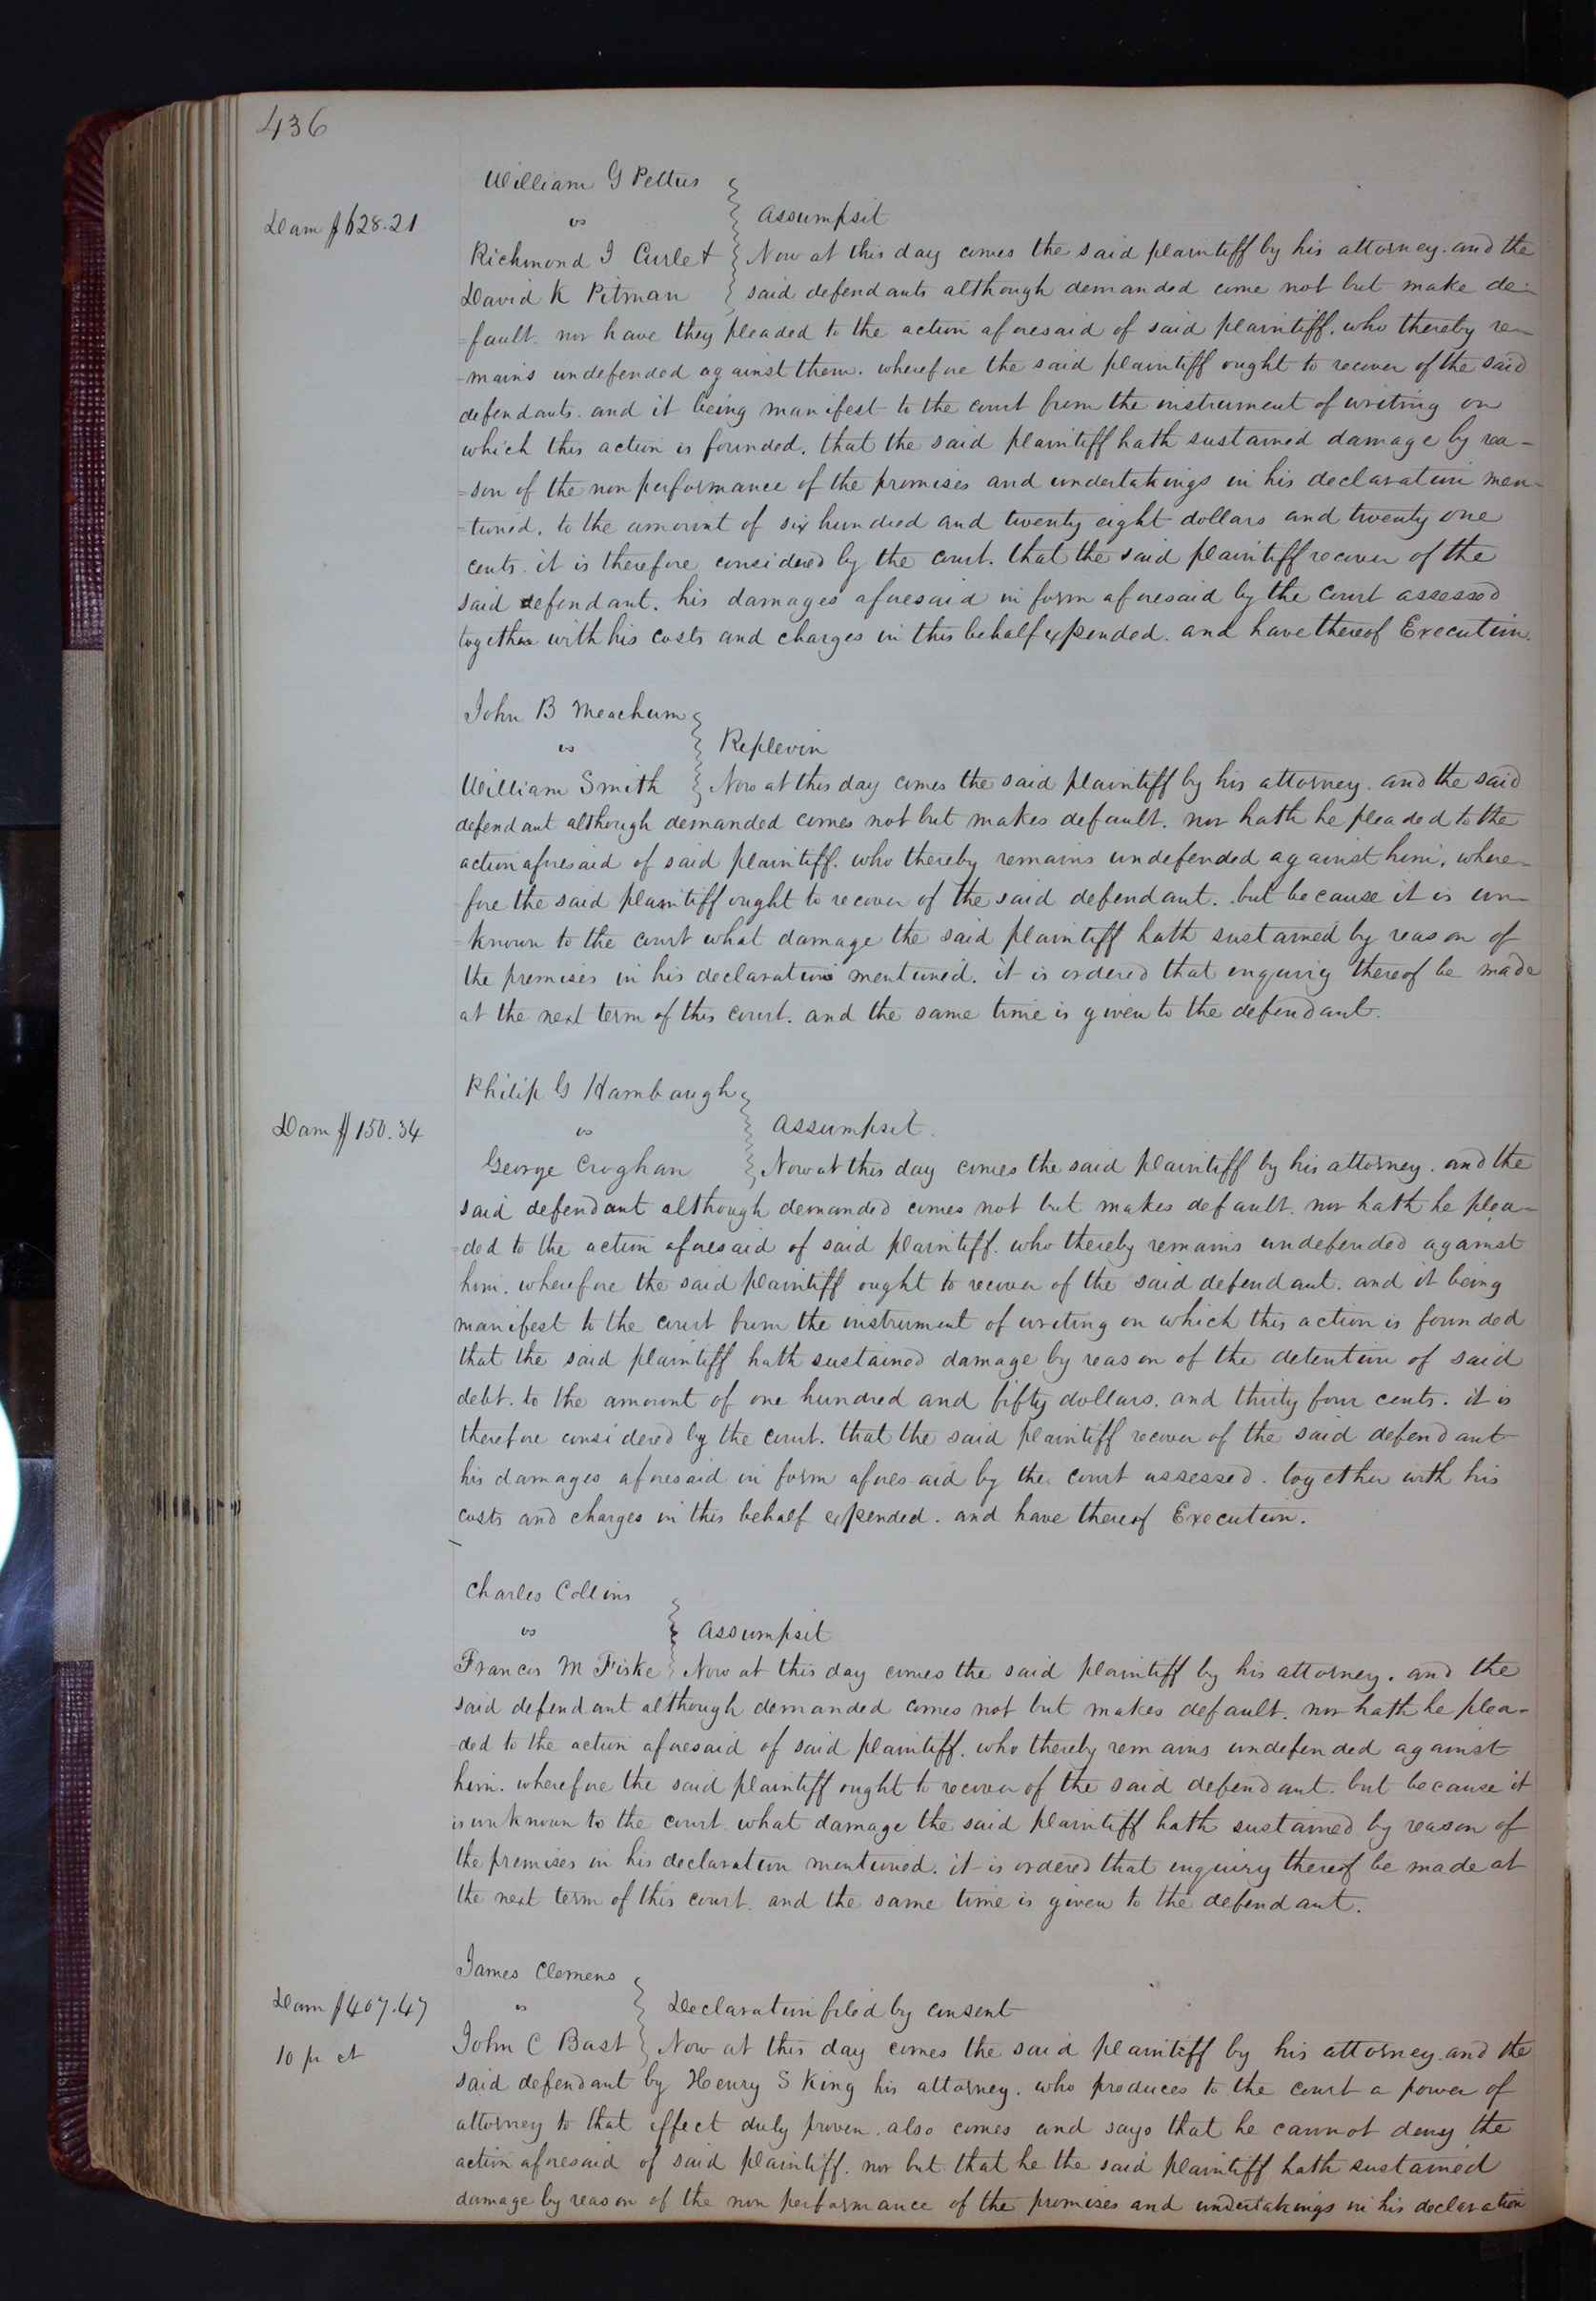 436
William G Pettus
vs
Dam $628.21
Assumpsit
Richmond J Curle &
David K Pitman
Now at this day comes the said plaintiff by his attorney. and the
said defendants although demanded come not but make de-
=fault. nor have they pleaded to the action aforesaid of said plaintiff. who thereby re-
-mains undefended against them. wherefore the said plaintiff ought to recover of the said
defendants. and it being manifest to the court from the instrument of writing on
which this action is founded. that the said plaintiff hath sustained damage by rea-
=son of the non performance of the promises and undertakings in his declaration men-
-tioned. to the amount of six hundred and twenty eight dollars and twenty one
cents. it is therefore considered by the court. that the said plaintiff recover of the
said defendant. his damages aforesaid in form aforesaid by the court assessed
together with his costs and charges in this behalf expended. and have thereof Execution.
John B Meachum
vs
Replevin
William Smith
Now at this day comes the said plaintiff by his attorney. and the said
defendant although demanded comes not but makes default. nor hath he pleaded to the
action aforesaid of said plaintiff. who thereby remains undefended against him. where-
fore the said plaintiff ought to recover of the said defendant. but because it is un-
=known to the court what damage the said plaintiff hath sustained by reason of
the premises in his declaration mentioned. it is ordered that enquiry thereof be made
at the next term of this court. and the same time is given to the defendant.
Philip G Hambaugh
vs
Dam $150.34
Assumpsit.
George Croghan
Now at this day comes the said plaintiff by his attorney. and the
said defendant although demanded comes not but makes default. nor hath he plea-
=ded to the action aforesaid of said plaintiff. who thereby remains undefended against
him. wherefore the said plaintiff ought to recover of the said defendant. and it being
manifest to the court from the instrument of writing on which this action is founded
that the said plaintiff hath sustained damage by reason of the detention of said
debt. to the amount of one hundred and fifty dollars. and thirty four cents. it is
therefore considered by the court. that the said plaintiff recover of the said defendant
his damages aforesaid in form aforesaid by the court assessed. together with his
costs and charges in this behalf expended. and have thereof Execution.
Charles Collins
vs
Assumpsit
Francis M Fiske
Now at this day comes the said plaintiff by his attorney. and the
said defendant although demanded comes not but makes default. nor hath he plea-
-ded to the action aforesaid of said plaintiff. who thereby remains undefended against
him. wherefore the said plaintiff ought to recover of the said defendant. but because it
is unknown to the court what damage the said plaintiff hath sustained by reason of
the premises in his declaration mentioned. it is ordered that inquiry thereof be made at
the next term of this court. and the same time is given to the defendant.
James Clemens
vs
Dam $407.47
10 pr ct
Declaration filed by consent
John C Bast
Now at this day comes the said plaintiff by his attorney. and the
said defendant by Henry S King his attorney. who produces to the court a power of
attorney to that effect duly proven. also comes and says that he cannot deny the
action aforesaid of said plaintiff. nor but that he the said plaintiff hath sustained
damage by reason of the non performance of the promises and undertakings in his declaration